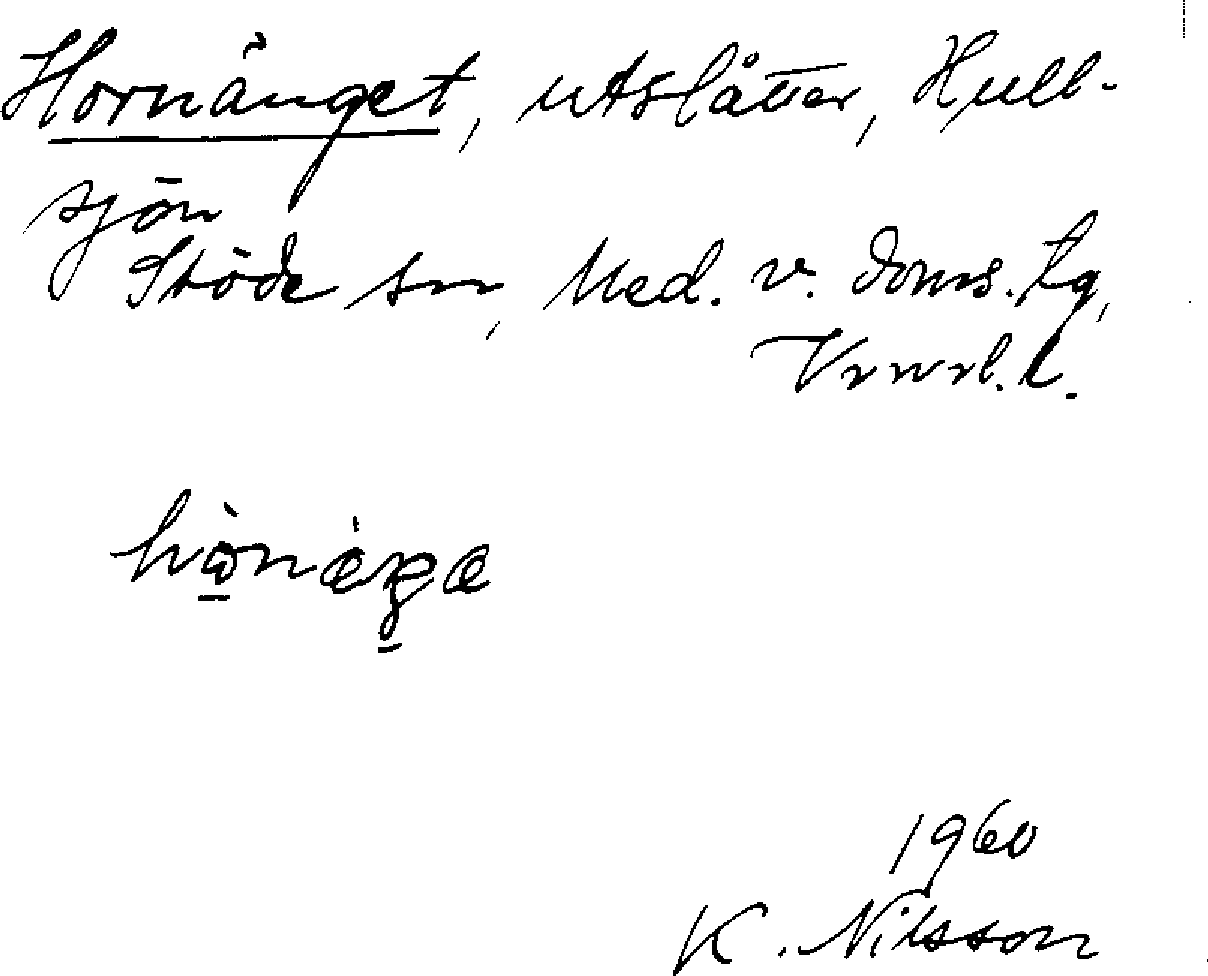 Hornänget, utslåtter, Hull-
sjön
Stöde sn, Med. v. doms. tg,
Vrnrl. l.
1960
K. Nilsson